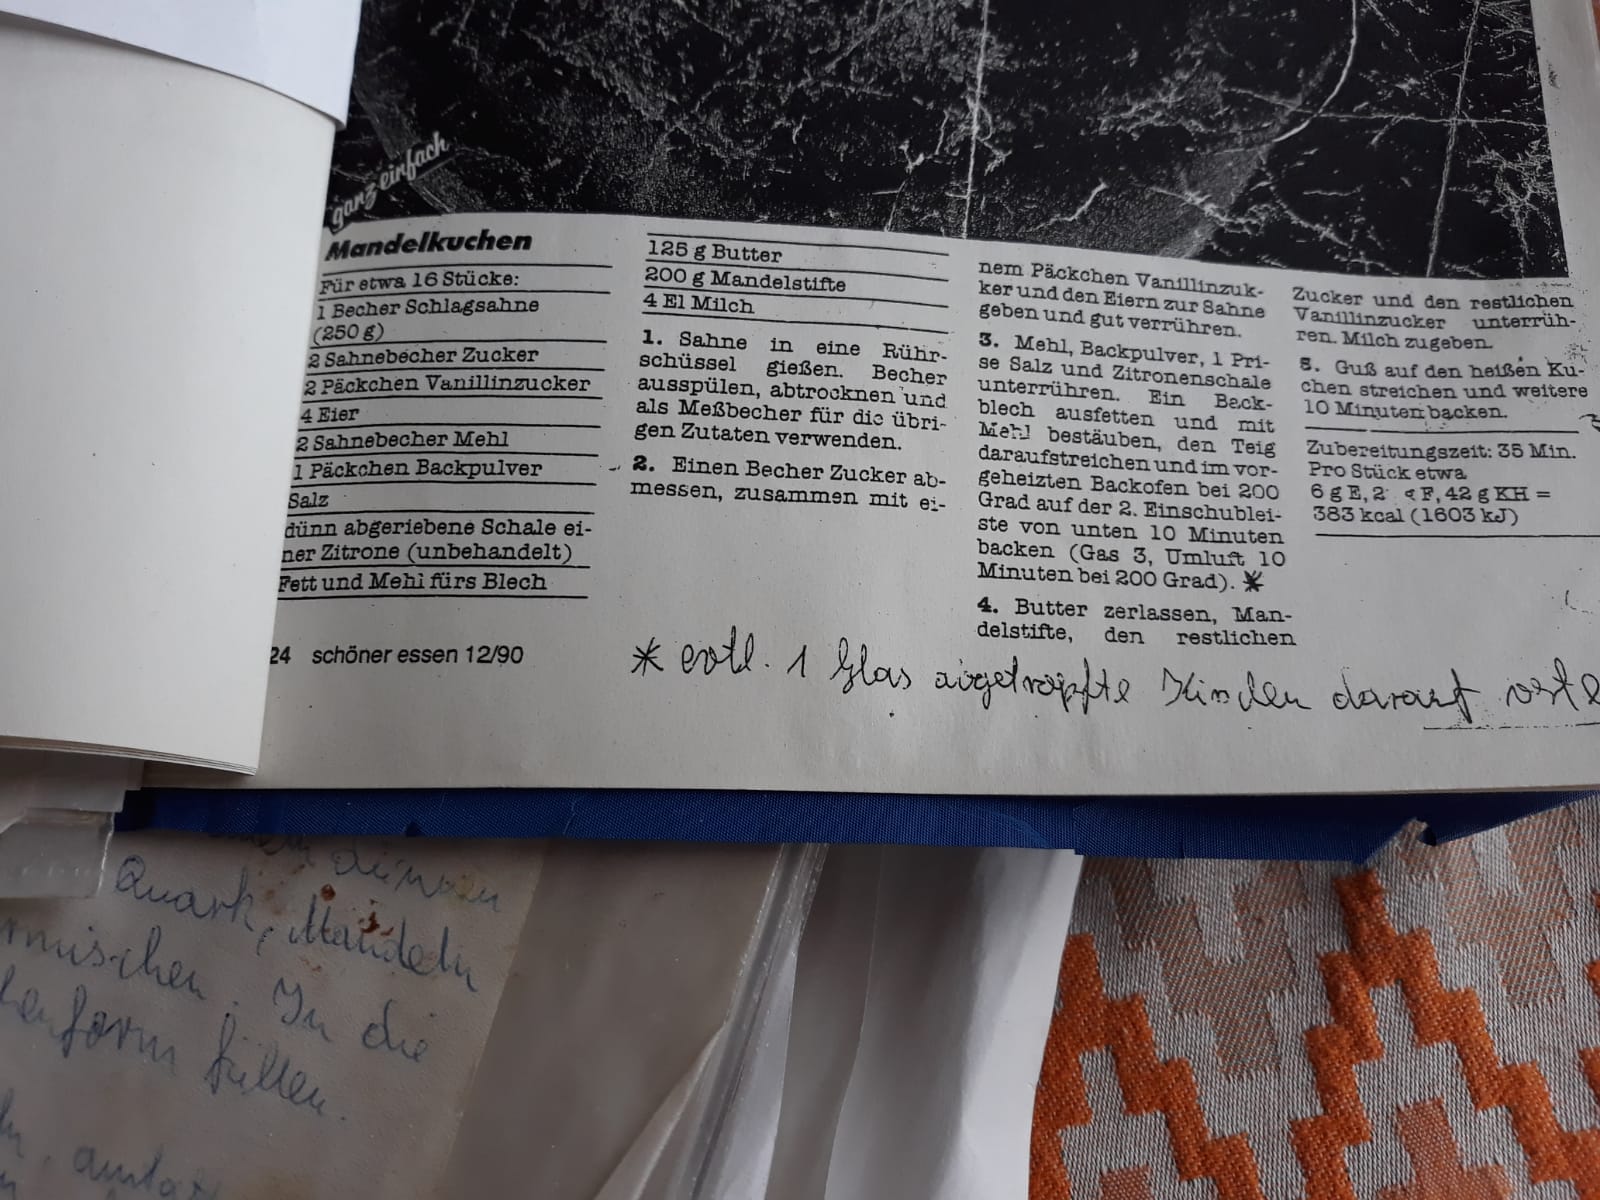 ganz einfach
Mandelkuchen
Für etwa 16 Stücke:
1 Becher Schlagsahne
(250 g)
2 Sahnebecher Zucker
2 Päckchen Vanillinzucker
4 Eier
2 Sahnebecher Mehl
1 Päckchen Backpulver
Salz
dünn abgeriebene Schale ei-
ner Zitrone (unbehandelt)
Fett und Mehl fürs Blech
125 g Butter
200 g Mandelstifte
4 El Milch
1. Sahne in eine Rühr-
schüssel gießen. Becher
ausspülen, abtrocknen und
als Meßbecher für die übri-
gen Zutaten verwenden.
2. Einen Becher Zucker ab-
messen, zusammen mit ei-
nem Päckchen Vanillinzuk-
ker und den Eiern zur Sahne
geben und gut verrühren.
3. Mehl, Backpulver, 1 Pri-
se Salz und Zitronenschale
unterrühren. Ein Back-
blech ausfetten und mit
Mehl bestäuben, den Teig
daraufstreichen und im vor-
geheizten Backofen bei 200
Grad auf der 2. Einschublei-
ste von unten 10 Minuten
backen (Gas 3, Umluft 10
Minuten bei 200 Grad). *
4. Butter zerlassen, Man-
delstifte, den restlichen
Zucker und den restlichen
Vanillinzucker unterrüh-
ren. Milch zugeben.
5. Guß auf den heißen Ku-
chen streichen und weitere
10 Minuten backen.
Zubereitungszeit: 35 Min.
Pro Stück etwa
6 g E, 2 F, 42 g KH =
383 kcal (1603 kJ)
24 schöner essen 12/90
* evtl. 1 Glas abgetropfte Kirschen darauf
Quark, Mandeln
mischen. In die
form füllen.